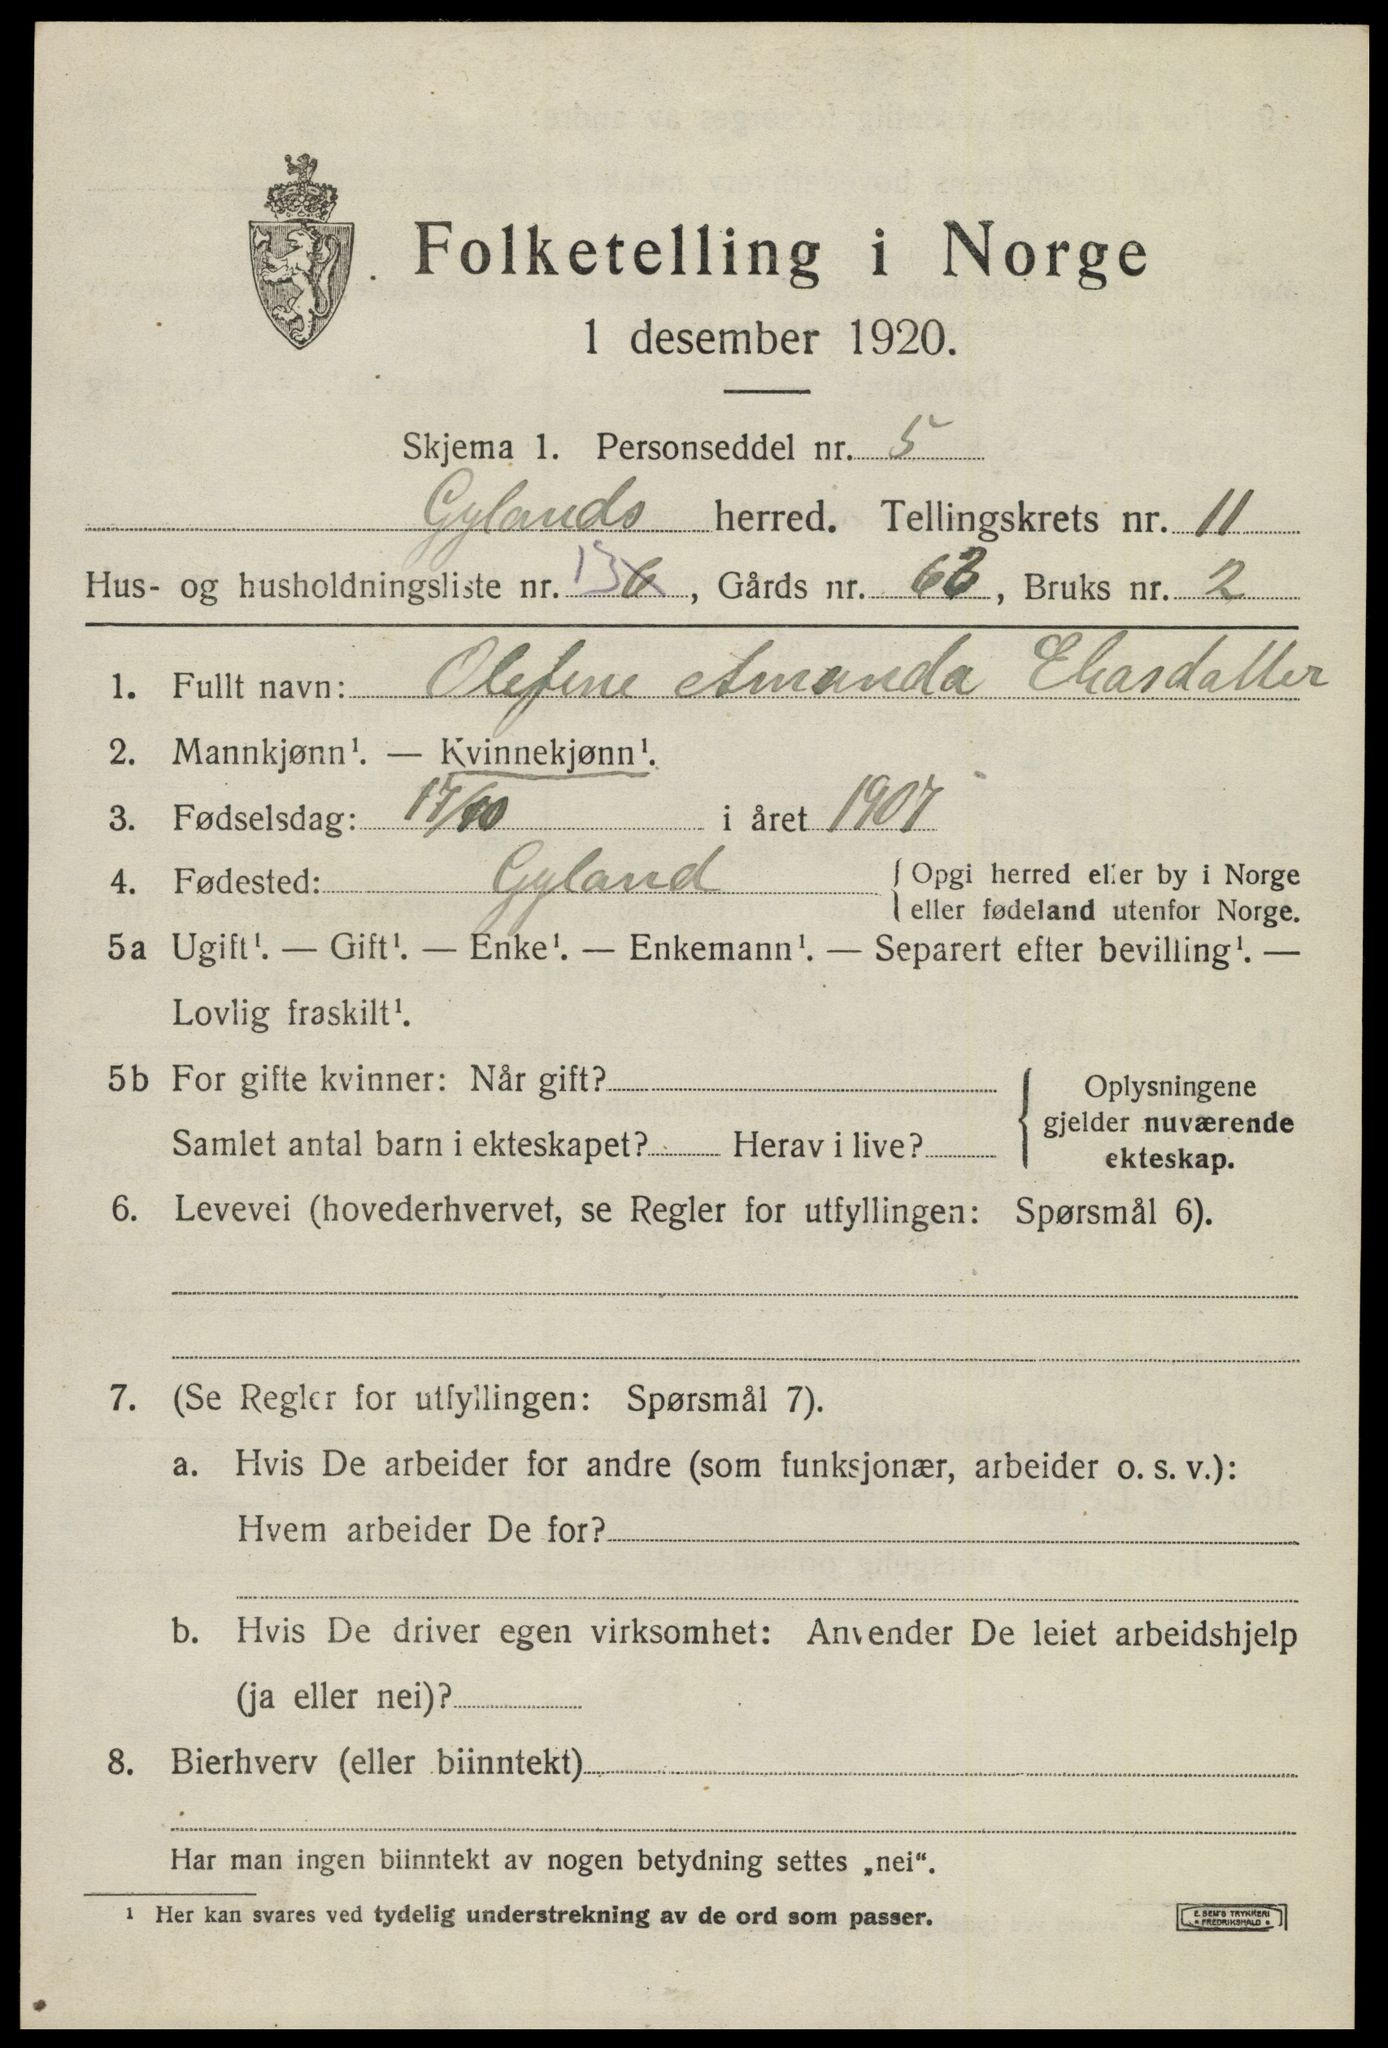 Folketelling i Norge
1 desember 1920.
Skjema 1. Personseddel nr. 5
Gylands herred. Tellingskrets nr. 11
Hus- og husholdningsliste nr. 13 6, Gårds nr. 62, Bruks nr. 2
1. Fullt navn: Olefine Amanda Eliasdatter
2. Mannkjønn¹. — Kvinnekjønn¹.
3. Fødselsdag: 17/10 i året 1907
4. Fødested: Gyland { Opgi herred eller by i Norge
eller fødeland utenfor Norge.
5a Ugift¹. — Gift¹. — Enke¹. — Enkemann¹. — Separert efter bevilling¹. —
Lovlig fraskilt¹.
5b For gifte kvinner: Når gift?
Samlet antal barn i ekteskapet? Herav i live?
{ Oplysningene
gjelder nuværende
ekteskap.
6. Levevei (hovederhvervet, se Regler for utfyllingen: Spørsmål 6).
7. (Se Regler for utfyllingen: Spørsmål 7).
a. Hvis De arbeider for andre (som funksjonær, arbeider o. s. v.):
Hvem arbeider De for?
b. Hvis De driver egen virksomhet: Anvender De leiet arbeidshjelp
(ja eller nei)?
8. Bierhverv (eller biinntekt)
Har man ingen biinntekt av nogen betydning settes „nei“.
¹ Her kan svares ved tydelig understrekning av de ord som passer.
E. SEM'S TRYKKERI
• FREDRIKSHALD •